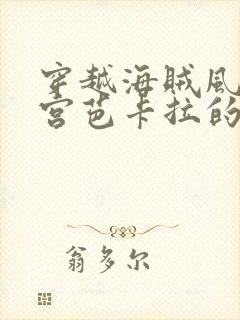 穿越海贼風
宫芭卡拉的
翁多尔